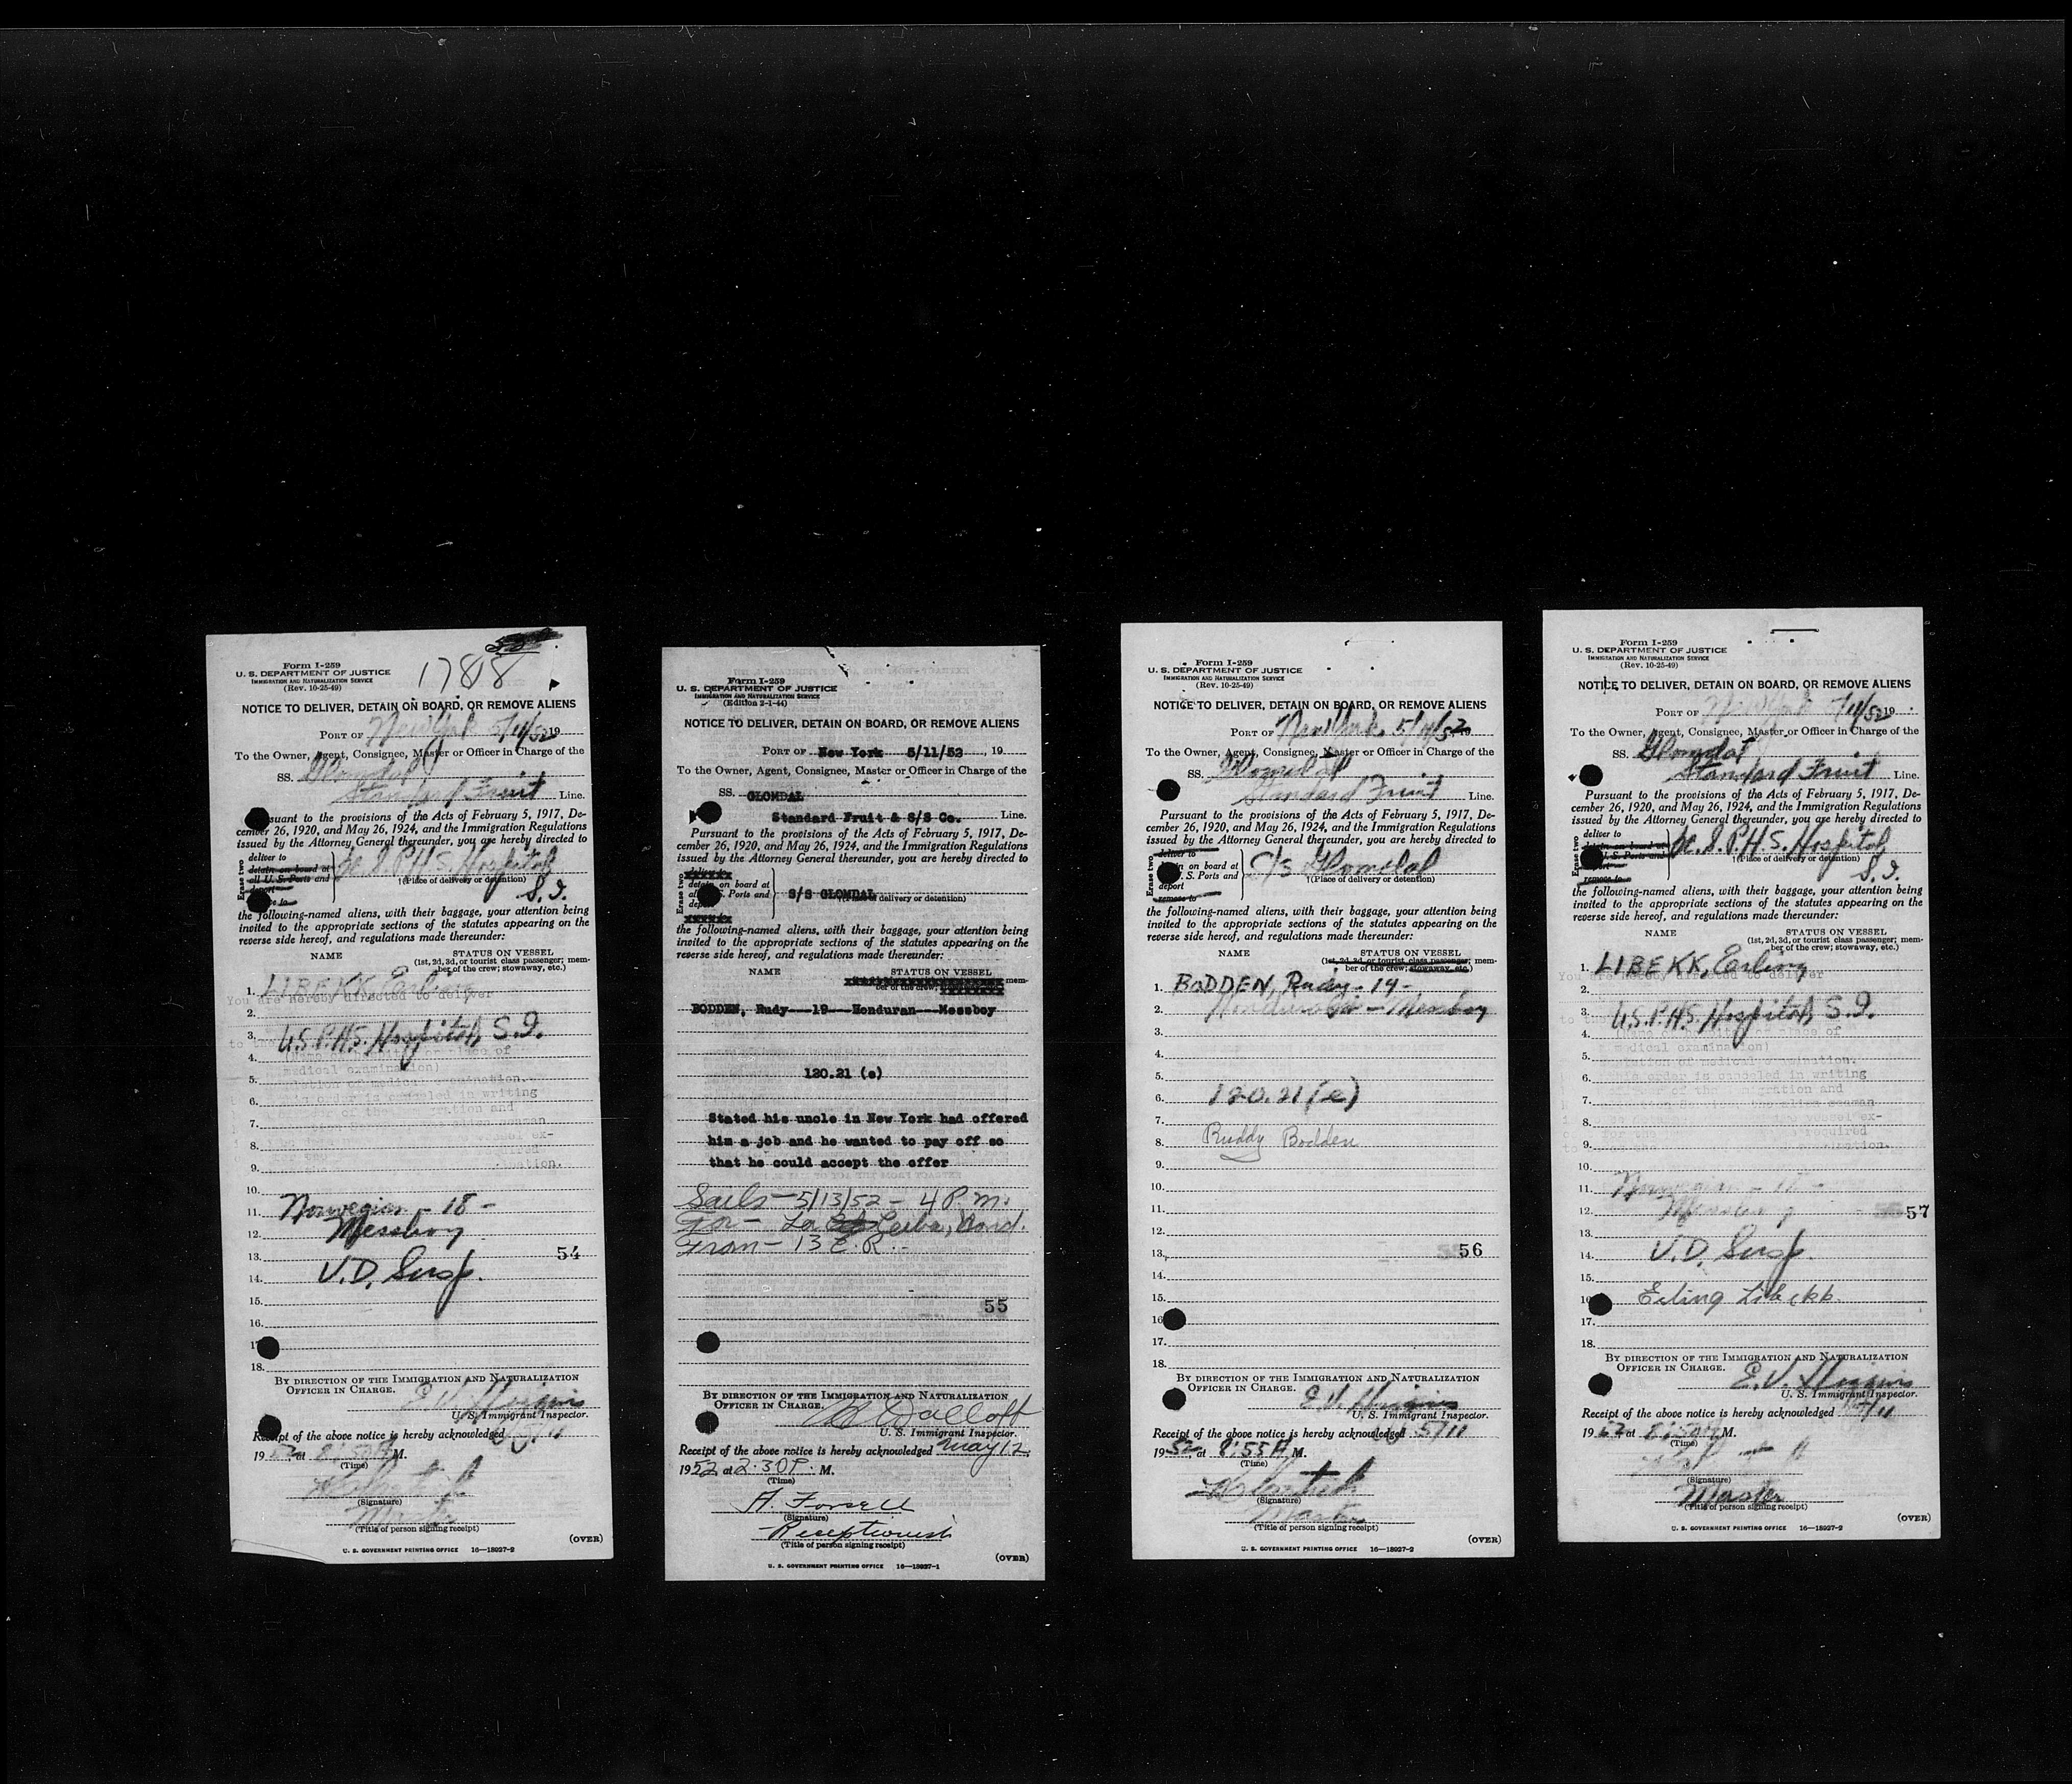 Form I-259
U. S. DEPARTMENT OF JUSTICE
IMMIGRATION AND NATURALIZATION SERVICE
(Rev. 10-25-49)
1788
NOTICE TO DELIVER, DETAIN ON BOARD, OR REMOVE ALIENS
PORT OF New York 5/11/52 19
To the Owner, Agent, Consignee, Master or Officer in Charge of the
SS. Glomdal
Standard Fruit Line.
Pursuant to the provisions of the Acts of February 5, 1917, De-
cember 26, 1920, and May 26, 1924, and the Immigration Regulations
issued by the Attorney General thereunder, you are hereby directed to
Erase two
deliver to
detain on board at
all U. S. Ports and
deport
remove to
U.S.P.H.S. Hospital
†(Place of delivery or detention)
S.I.
the following-named aliens, with their baggage, your attention being
invited to the appropriate sections of the statutes appearing on the
reverse side hereof, and regulations made thereunder:
NAME STATUS ON VESSEL
(1st, 2d, 3d, or tourist class passenger; mem-
ber of the crew; stowaway, etc.)
1. LIBEKK, Erling
You are hereby directed to deliver
2.
3. U.S.P.H.S. Hospital, S.I.
4.
medical examination)
5.
6.
7.
8.
9.
10.
11. Norwegian - 18 -
12. Messboy
13. 54
14. V.D. Susp.
15.
16.
17.
18.
BY DIRECTION OF THE IMMIGRATION AND NATURALIZATION
OFFICER IN CHARGE.
E.V. Higgins
U. S. Immigrant Inspector.
Receipt of the above notice is hereby acknowledged 5/11
1952, at 8:50 A M.
(Time)
(Signature)
Master
(Title of person signing receipt)
(OVER)
U. S. GOVERNMENT PRINTING OFFICE 16—18927-2
Form I-259
U. S. DEPARTMENT OF JUSTICE
IMMIGRATION AND NATURALIZATION SERVICE
(Edition 2-1-44)
NOTICE TO DELIVER, DETAIN ON BOARD, OR REMOVE ALIENS
PORT OF New York 5/11/52 , 19
To the Owner, Agent, Consignee, Master or Officer in Charge of the
SS. GLOMDAL
Standard Fruit & S/S Co. Line.
Pursuant to the provisions of the Acts of February 5, 1917, De-
cember 26, 1920, and May 26, 1924, and the Immigration Regulations
issued by the Attorney General thereunder, you are hereby directed to
Erase two
xxxxxx
detain on board at
all U. S. Ports and
deport
xxxxxx
S/S GLOMDAL
†(Place of delivery or detention)
the following-named aliens, with their baggage, your attention being
invited to the appropriate sections of the statutes appearing on the
reverse side hereof, and regulations made thereunder:
NAME STATUS ON VESSEL
mem-
ber of the crew;
BODDEN, Rudy---19---Honduran---Messboy
120.21 (e)
Stated his uncle in New York had offered
him a job and he wanted to pay off so
that he could accept the offer
Sails - 5/13/52 - 4 P.M.
For - La Ceiba, Hond.
From - 13 E. R.
55
BY DIRECTION OF THE IMMIGRATION AND NATURALIZATION
OFFICER IN CHARGE.
U. S. Immigrant Inspector.
Receipt of the above notice is hereby acknowledged May 12,
1952, at 2:30 P. M.
(Time)
H. Forsell
(Signature)
Receptionist
(Title of person signing receipt)
(OVER)
U. S. GOVERNMENT PRINTING OFFICE 16—18927-1
Form I-259
U. S. DEPARTMENT OF JUSTICE
IMMIGRATION AND NATURALIZATION SERVICE
(Rev. 10-25-49)
NOTICE TO DELIVER, DETAIN ON BOARD, OR REMOVE ALIENS
PORT OF New York, 5/11/52
To the Owner, Agent, Consignee, Master or Officer in Charge of the
SS. Glomdal
Standard Fruit Line.
Pursuant to the provisions of the Acts of February 5, 1917, De-
cember 26, 1920, and May 26, 1924, and the Immigration Regulations
issued by the Attorney General thereunder, you are hereby directed to
Erase two
deliver to
detain on board at
all U. S. Ports and
deport
remove to
S/S Glomdal
†(Place of delivery or detention)
the following-named aliens, with their baggage, your attention being
invited to the appropriate sections of the statutes appearing on the
reverse side hereof, and regulations made thereunder:
NAME STATUS ON VESSEL
(1st, 2d, 3d, or tourist class passenger; mem-
ber of the crew; stowaway, etc.)
1. BODDEN, Rudy - 19 -
2. Honduran - Messboy
3.
4.
5.
6. 120.21 (e)
7.
8. Ruddy Bodden
9.
10.
11.
12.
13. 56
14.
15.
16.
17.
18.
BY DIRECTION OF THE IMMIGRATION AND NATURALIZATION
OFFICER IN CHARGE.
E.V. Higgins
U. S. Immigrant Inspector.
Receipt of the above notice is hereby acknowledged 5/11
1952, at 8:55 A M.
(Time)
(Signature)
Master
(Title of person signing receipt)
(OVER)
U. S. GOVERNMENT PRINTING OFFICE 16—18927-2
Form I-259
U. S. DEPARTMENT OF JUSTICE
IMMIGRATION AND NATURALIZATION SERVICE
(Rev. 10-25-49)
NOTICE TO DELIVER, DETAIN ON BOARD, OR REMOVE ALIENS
PORT OF New York 5/11/52 19
To the Owner, Agent, Consignee, Master or Officer in Charge of the
SS. Glomdal
Standard Fruit Line.
Pursuant to the provisions of the Acts of February 5, 1917, De-
cember 26, 1920, and May 26, 1924, and the Immigration Regulations
issued by the Attorney General thereunder, you are hereby directed to
Erase two
deliver to
detain on board at
all U. S. Ports and
deport
remove to
U.S.P.H.S. Hospital
†(Place of delivery or detention)
S.I.
the following-named aliens, with their baggage, your attention being
invited to the appropriate sections of the statutes appearing on the
reverse side hereof, and regulations made thereunder:
NAME STATUS ON VESSEL
(1st, 2d, 3d, or tourist class passenger; mem-
ber of the crew; stowaway, etc.)
1. LIBEKK, Erling
You are hereby directed to deliver
2.
3. U.S.P.H.S. Hospital, S.I.
4.
medical examination)
5.
6.
7.
8.
9.
10.
11. Norwegian - 18 -
12. Messboy 57
13.
14. V.D. Susp.
15.
16. Erling Libekk.
17.
18.
BY DIRECTION OF THE IMMIGRATION AND NATURALIZATION
OFFICER IN CHARGE.
E.V. Higgins
U. S. Immigrant Inspector.
Receipt of the above notice is hereby acknowledged
1952 at 8:50 A M.
(Time)
(Signature)
Master
(Title of person signing receipt)
(OVER)
U. S. GOVERNMENT PRINTING OFFICE 16—18927-2